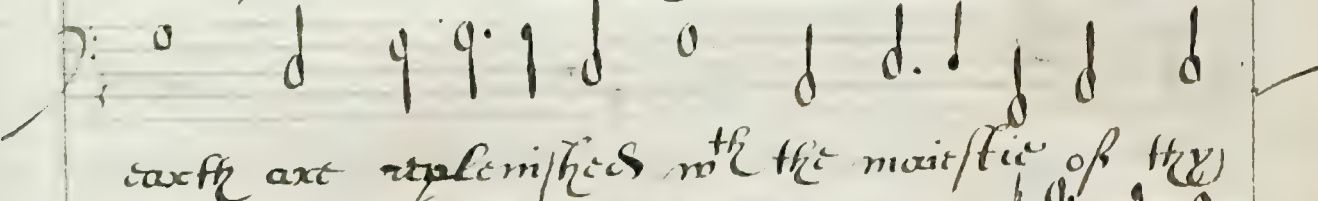 earth are replenished wth the maiestie of thy